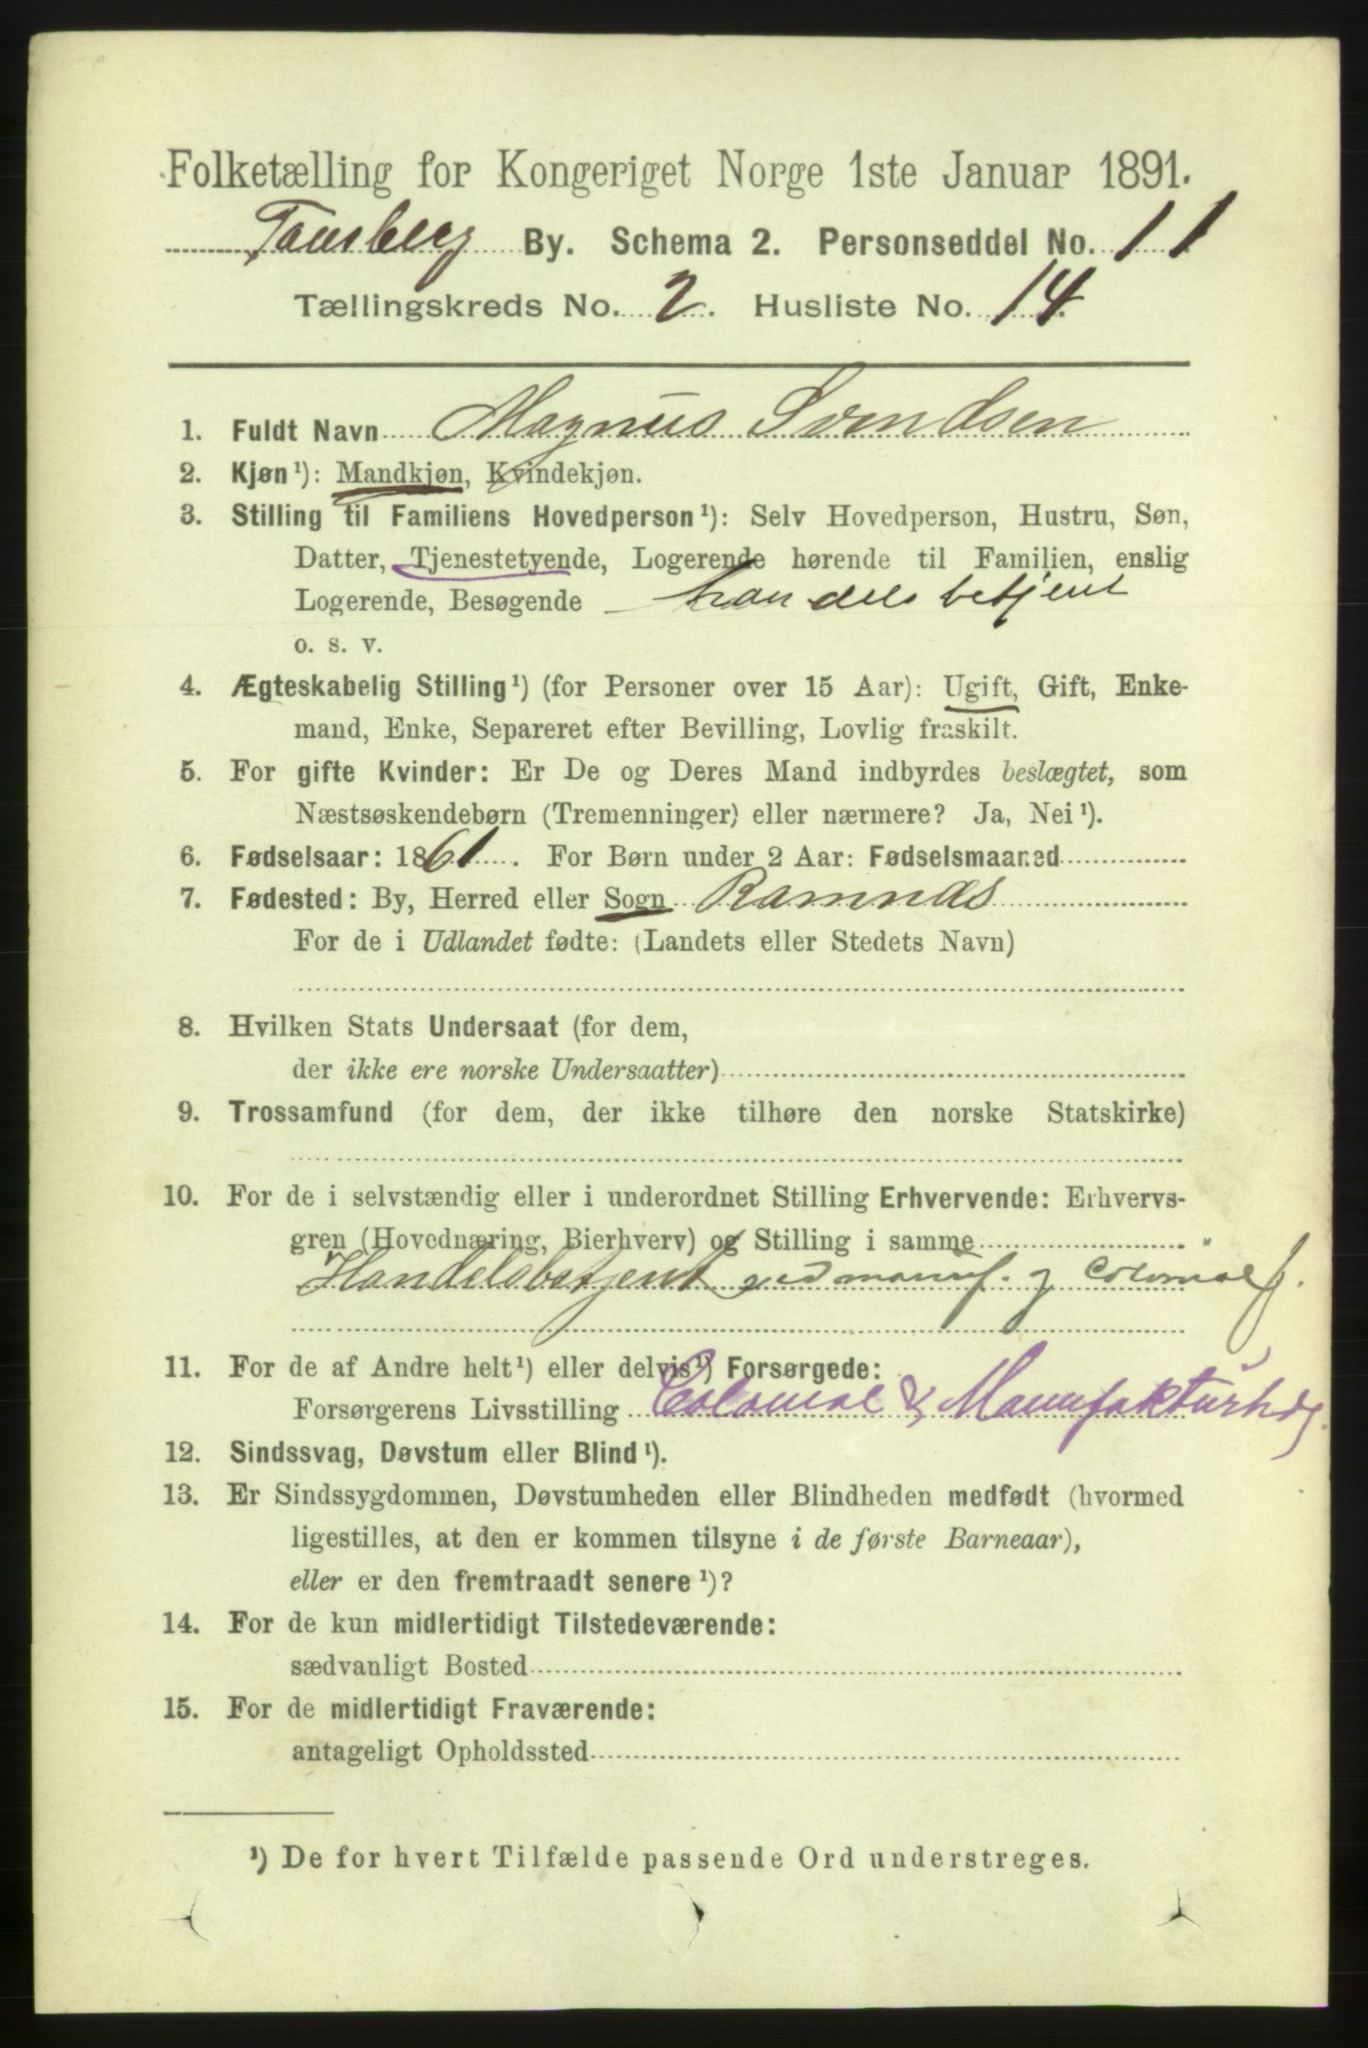 Folketælling for Kongeriget Norge 1ste Januar 1891.
Tønsberg By. Schema 2. Personseddel No. 11
Tællingskreds No. 2. Husliste No. 14.
1. Fuldt Navn Magnus Svendsen
2. Kjøn¹): Mandkjøn, Kvindekjøn.
3. Stilling til Familiens Hovedperson¹): Selv Hovedperson, Hustru, Søn,
Datter, Tjenestetyende, Logerende hørende til Familien, enslig
Logerende, Besøgende handelsbetjent
o. s. v.
4. Ægteskabelig Stilling¹) (for Personer over 15 Aar): Ugift, Gift, Enke-
mand, Enke, Separeret efter Bevilling, Lovlig fraskilt.
5. For gifte Kvinder: Er De og Deres Mand indbyrdes beslægtet, som
Næstsøskendebørn (Tremenninger) eller nærmere? Ja, Nei¹).
6. Fødselsaar: 1861. For Børn under 2 Aar: Fødselsmaaned
7. Fødested: By, Herred eller Sogn Ramnæs
For de i Udlandet fødte: (Landets eller Stedets Navn)
8. Hvilken Stats Undersaat (for dem,
der ikke ere norske Undersaatter)
9. Trossamfund (for dem, der ikke tilhøre den norske Statskirke)
10. For de i selvstændig eller i underordnet Stilling Erhvervende: Erhvervs-
gren (Hovednæring, Bierhverv) og Stilling i samme
Handelsbetjent ved manuf. og Colonial f.
11. For de af Andre helt¹) eller delvis¹) Forsørgede:
Forsørgerens Livsstilling Colonial & Manufakturhdg.
12. Sindssvag, Døvstum eller Blind¹).
13. Er Sindssygdommen, Døvstumheden eller Blindheden medfødt (hvormed
ligestilles, at den er kommen tilsyne i de første Barneaar),
eller er den fremtraadt senere¹)?
14. For de kun midlertidigt Tilstedeværende:
sædvanligt Bosted
15. For de midlertidigt Fraværende:
antageligt Opholdssted
¹) De for hvert Tilfælde passende Ord understreges.